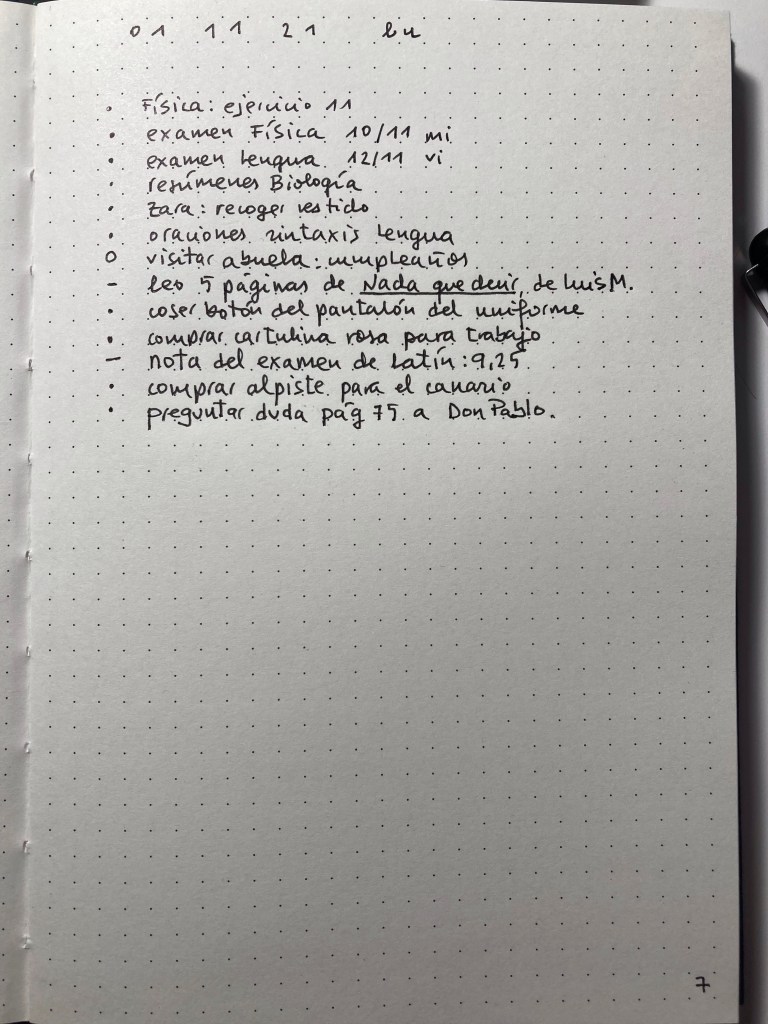 01 11 21 lu
• Física: ejercicio 11
• examen Física 10/11 mi
• examen Lengua 12/11 vi
• resúmenes Biología
• Zara: recoger vestido
• oraciones sintaxis Lengua
o visitar abuela: cumpleaños
– leo 5 páginas de Nada que decir, de Luis M.
• coser botón del pantalón del uniforme
• comprar cartulina rosa para trabajo
– nota del examen de Latín: 9,25
• comprar alpiste para el canario
• preguntar duda pág 75 a Don Pablo.
7